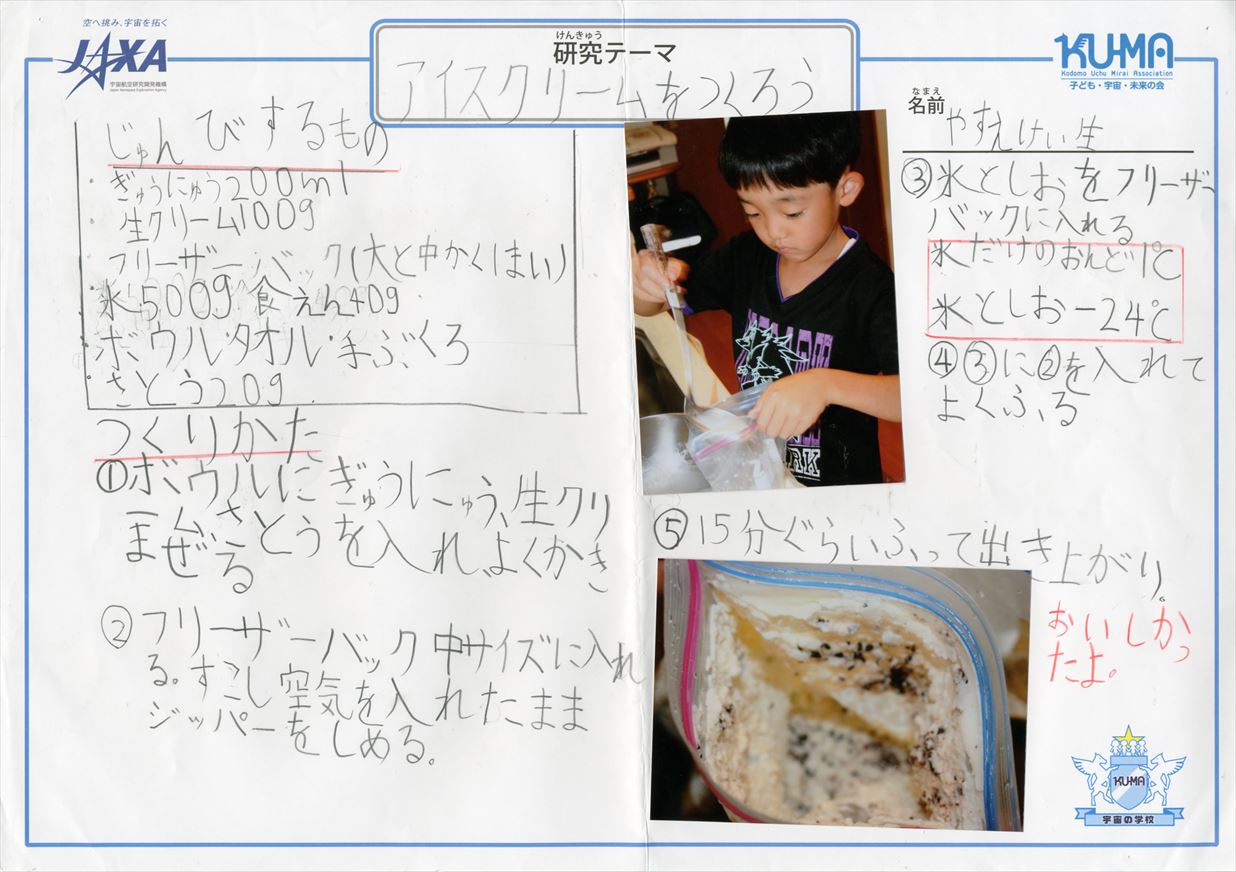 空へ挑み、宇宙を拓く
JAXA
宇宙航空研究開発機構
Japan Aerospace Exploration Agency
けんきゅう
研究テーマ
アイスクリームをつくろう
KU-MA
Kodomo Uchu Mirai Association
子ども・宇宙・未来の会
なまえ
名前
やすえけい生
じゅんびするもの
・ぎゅうにゅう200ml
生クリーム100g
フリーザーバック(大と中かく1まい)
・氷500g 食えん40g
・ボウル・タオル・手ぶくろ
・さとう20g
つくりかた
①ボウルにぎゅうにゅう、生クリ
ーム、さとうを入れ、よくかき
まぜる
②フリーザーバック中サイズに入れ
る。すこし空気を入れたまま
ジッパーをしめる。
③氷としおをフリーザー
バックに入れる
氷だけのおんど1℃
氷としお-24℃
④③に②を入れて
よくふる
⑤15分ぐらいふって出き上がり。
おいしかっ
たよ。
KU-MA
宇宙の学校